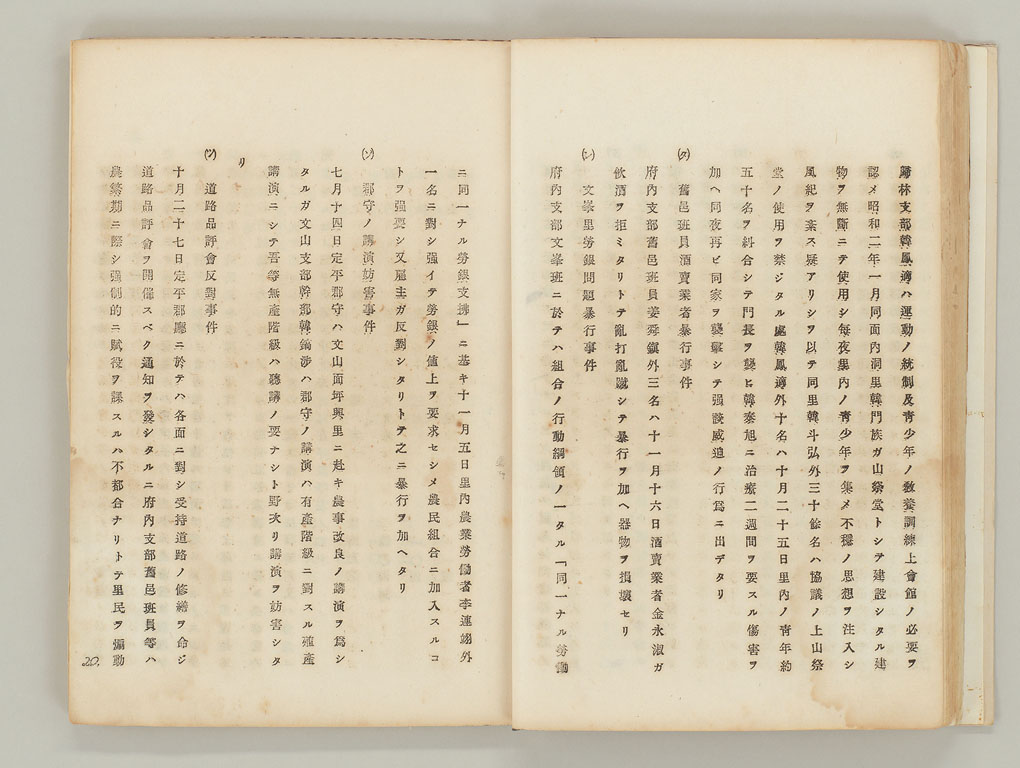 歸林支部韓鳳適ハ運動ノ統制及青少年ノ敎養訓練上會館ノ必要ヲ
認メ昭和二年一月同面內洞里韓門族ガ山祭堂トシテ建設シタル建
物ヲ無斷ニテ使用シ每夜里內ノ靑少年ヲ集メ不穩ノ思想ヲ注入シ
風紀ヲ紊ス疑アリシヲ以テ同里韓斗弘外三十餘名ハ協議ノ上山祭
堂ノ使用ヲ禁ジタル處韓鳳適外十名ハ十月二十五日里內ノ靑年約
五十名ヲ糾合シテ門長ヲ襲ヒ韓泰旭ニ治療二週間ヲ要スル傷害ヲ
加ヘ同夜再ビ同家ヲ襲擊シテ强談威迫ノ行爲ニ出デタリ
(タ) 舊邑班員酒賣業者暴行事件
府內支部舊邑班員姜舜鎭外三名ハ十一月十六日酒賣業者金永淑ガ
飮酒ヲ拒ミタリトテ亂打亂蹴シテ暴行ヲ加ヘ器物ヲ損壞セリ
(レ) 文峯里勞銀問題暴行事件
府內支部文峯班ニ於テハ組合ノ行動綱領ノ一タル「同一ナル勞働
ニ同一ナル勞銀支拂」ニ基キ十一月五日里內農業勞働者李連 外
一名ニ對シ强イテ勞銀ノ値上ヲ要求セシメ農民組合ニ加入スルコ
トヲ强要シ又雇主ガ反對シタリトテ之ニ暴行ヲ加ヘタリ
(ソ) 郡守ノ講演訪害事件
七月十四日定平郡守ハ文山面坪興里ニ赴キ農事改良ノ講演ヲ爲シ
タルガ文山支部幹部韓鎬涉ハ郡守ノ講演ハ有產階級ニ對スル殖產
講演ニシテ吾等無產階級ハ聽講ノ要ナシト野次リ講演ヲ訪害シタ
リ
(ツ) 道路品評會反對事件
十月二十七日定平郡廳ニ於テハ各面ニ對シ受持道路ノ修繕ヲ命ジ
道路品評會ヲ開催スベク通知ヲ發シタルニ府內支部舊邑班員等ハ
農繁期ニ際シ强制的ニ賦役ヲ課スルハ不都合ナリトテ里民ヲ煽動
20.